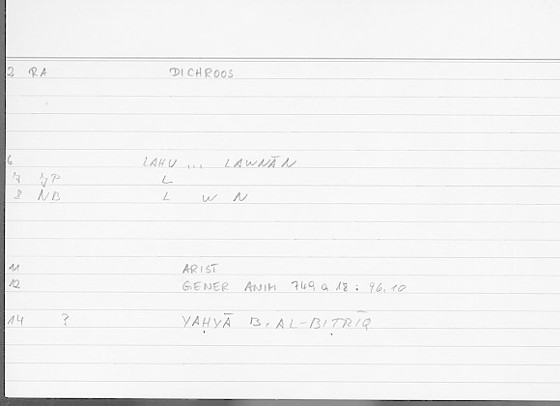 2 RA DICHROOS
6 LAHU ... LAWNĀN
7 L
8 NB L W N
11 ARIST
12 GENER ANIM 749 a 18 : 96.10
14 ? YAḤYĀ B. AL-BIṬRĪQ